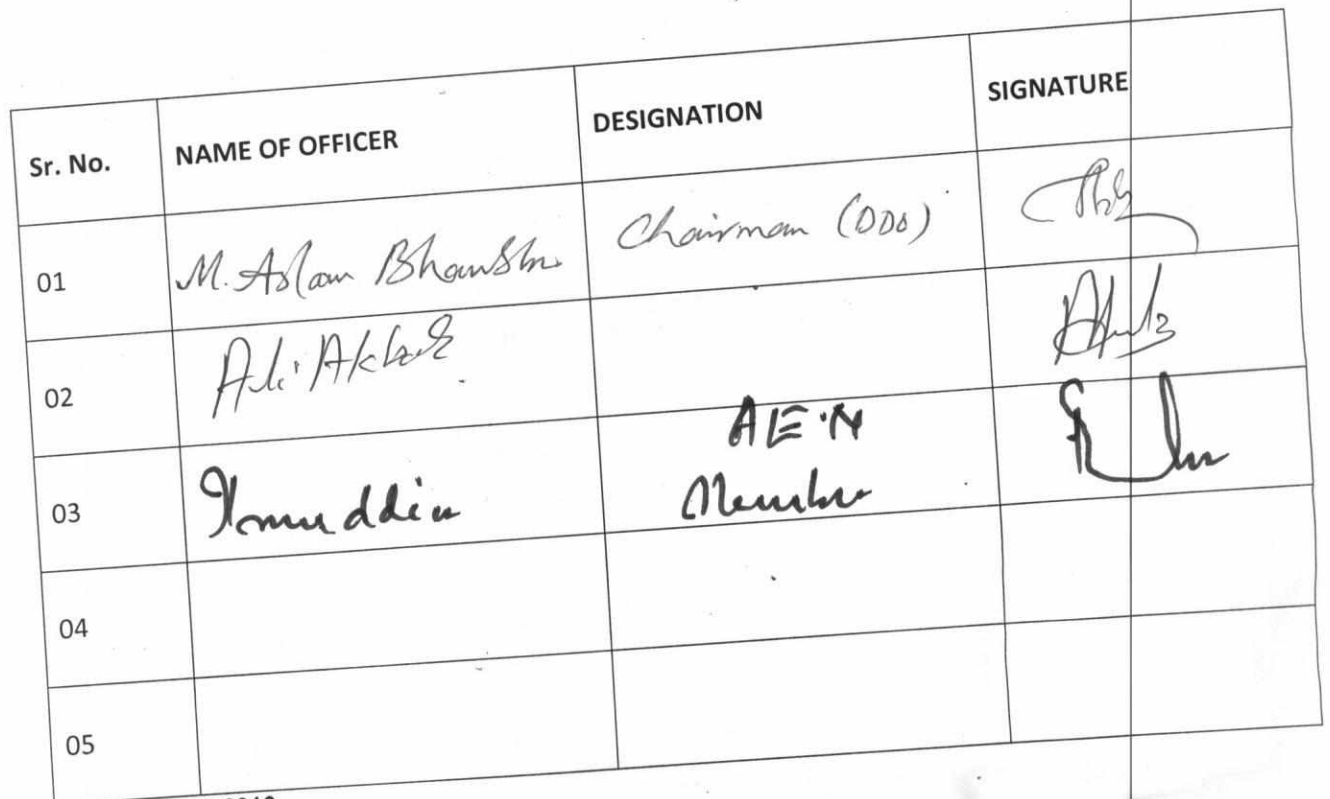 Sr. No. NAME OF OFFICER DESIGNATION SIGNATURE
01 M. Aslam Chairman (DDO)
02 Ali Akbar
03 AE.N
Member
04
05